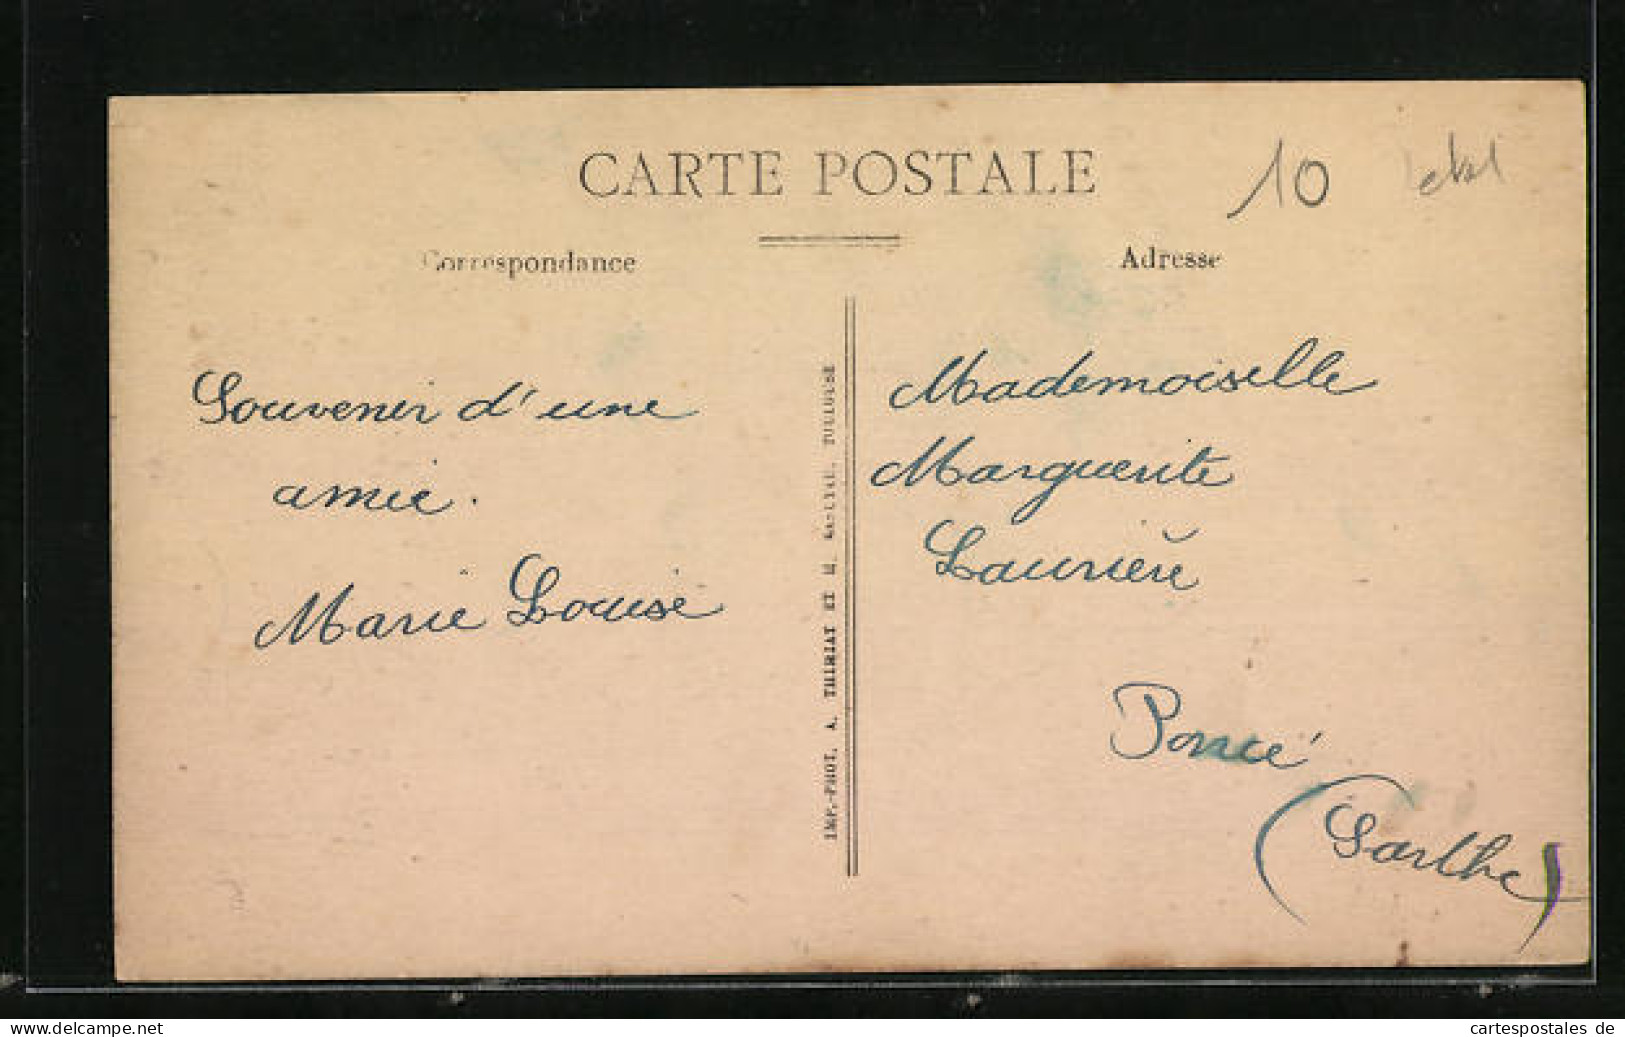 CARTE POSTALE
10
Correspondance
Adresse
Souvenir d'une
amie.
Marie Louise
IMP.-PHOT. A. THIRIAT ET M. TOULOUSE
Mademoiselle
Marguerite
Laurière
Poncé
(Sarthe)
www.oldthing.net
cartespostales de